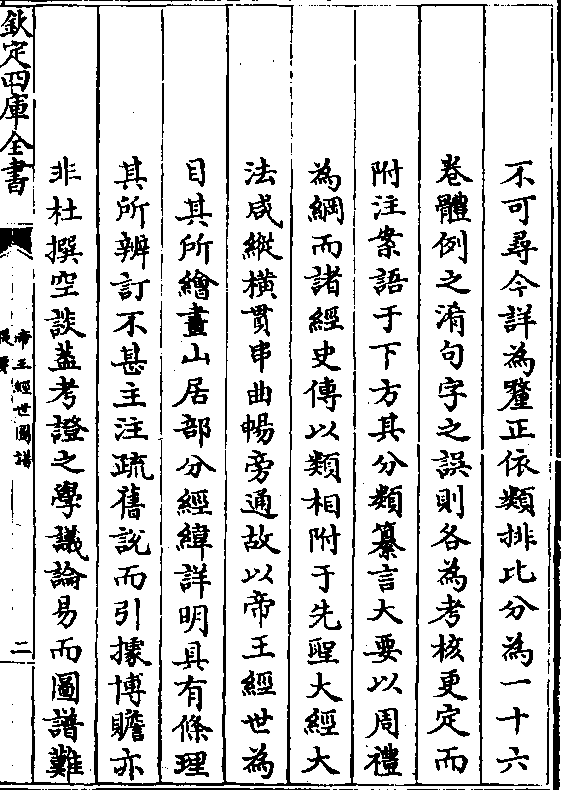 不可尋今詳為釐正依類排比分為一十六
卷體例之淆句字之誤則各為考核更定而
附注案語于下方其分類纂言大要以周禮
為綱而諸經史傳以類相附于先聖大經大
法咸縱橫貫串曲暢旁通故以帝王經世為
目其所繪畫山居部分經緯詳明具有條理
其所辨訂不甚主注疏舊說而引據博贍亦
非杜撰空談葢考證之學議論易而圖譜難
欽定四庫全書
帝王經世圖譜
提要
二